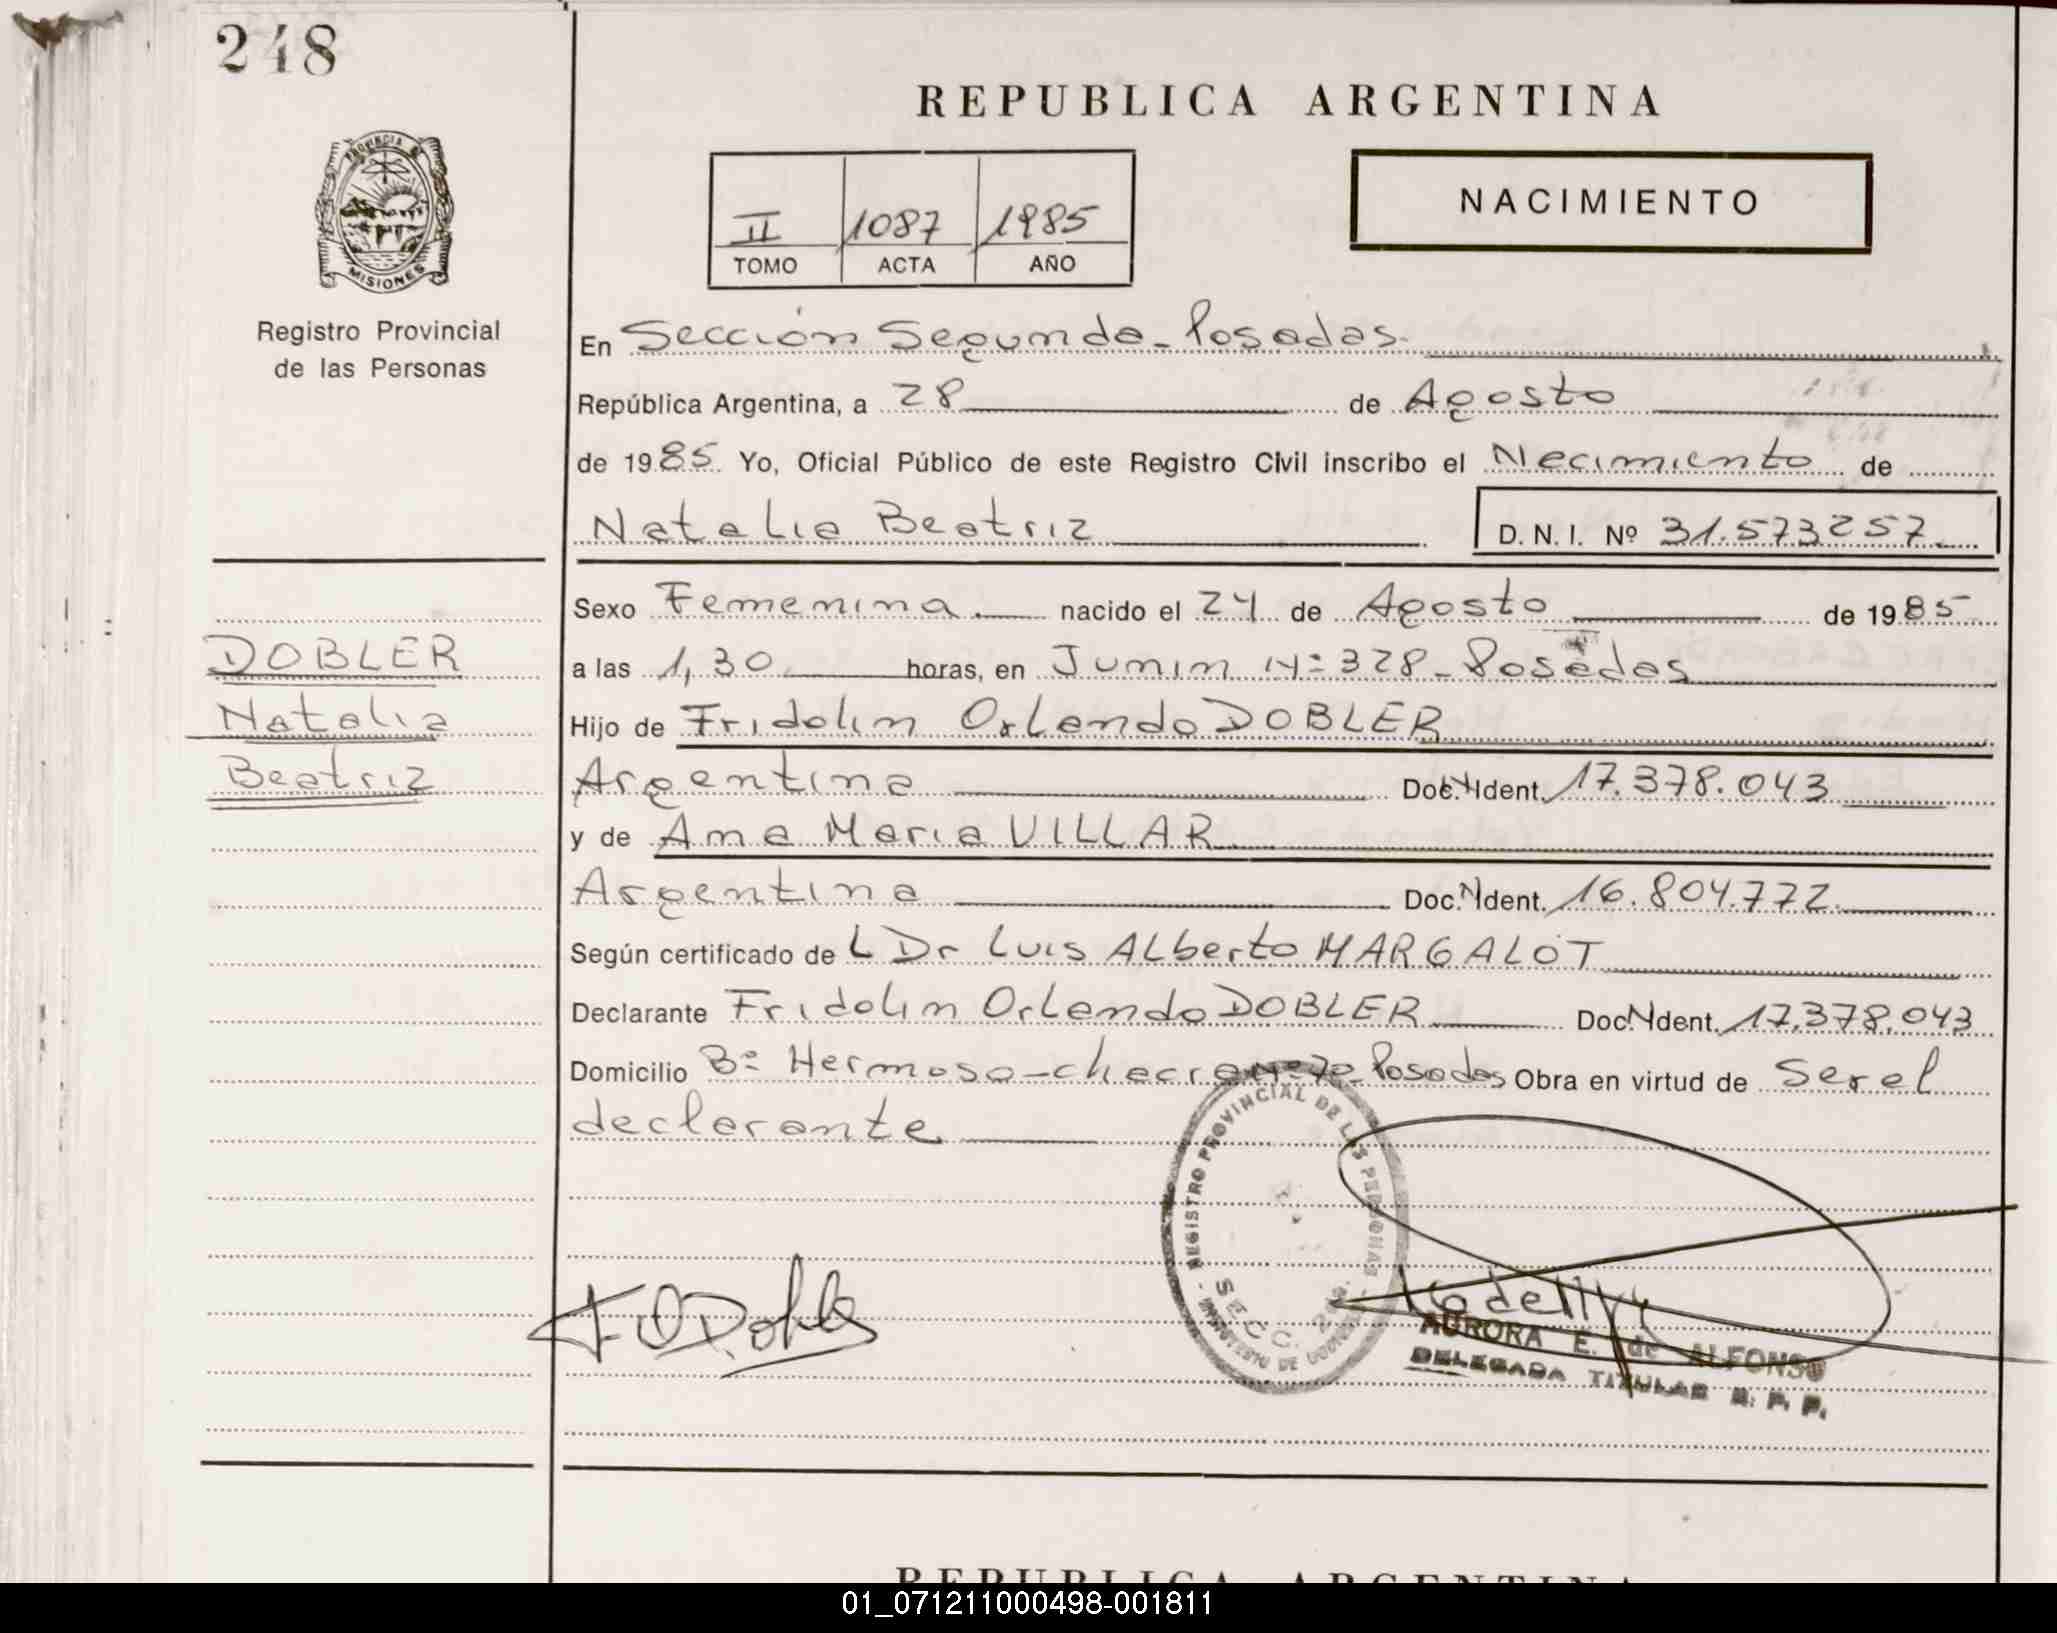 248
REPUBLICA ARGENTINA
PROVINCIA DE
MISIONES
Registro Provincial
de las Personas
II 1087 1985
TOMO ACTA AÑO
NACIMIENTO
En Sección Segunda - Posadas.
República Argentina, a 28 de Agosto
de 1985. Yo, Oficial Público de este Registro Civil inscribo el Nacimiento de
Natalia Beatriz D. N. I. Nº 31.573257.
Sexo Femenina. nacido el 24 de Agosto de 1985
a las 1,30 horas, en Junin Nº 328 - Posadas
Hijo de Fridolin Orlando DOBLER
Argentina Doc. N Ident. 17.378.043
y de Ana Maria VILLAR
Argentina Doc. N Ident. 16.804.772.
Según certificado de L Dr Luis ALberto MARGALOT
Declarante Fridolin Orlando DOBLER Doc. N Ident. 17.378.043
Domicilio Bº Hermoso - chacra Nº 70 - Posadas Obra en virtud de Ser el
declarante
DOBLER
Natalia
Beatriz
REGISTRO PROVINCIAL DE LAS PERSONAS
SECC. 2da.
F O Dobler
AURORA E. de ALFONSO
DELEGADA TITULAR R. P. P.
REPUBLICA ARGENTINA
01_071211000498-001811